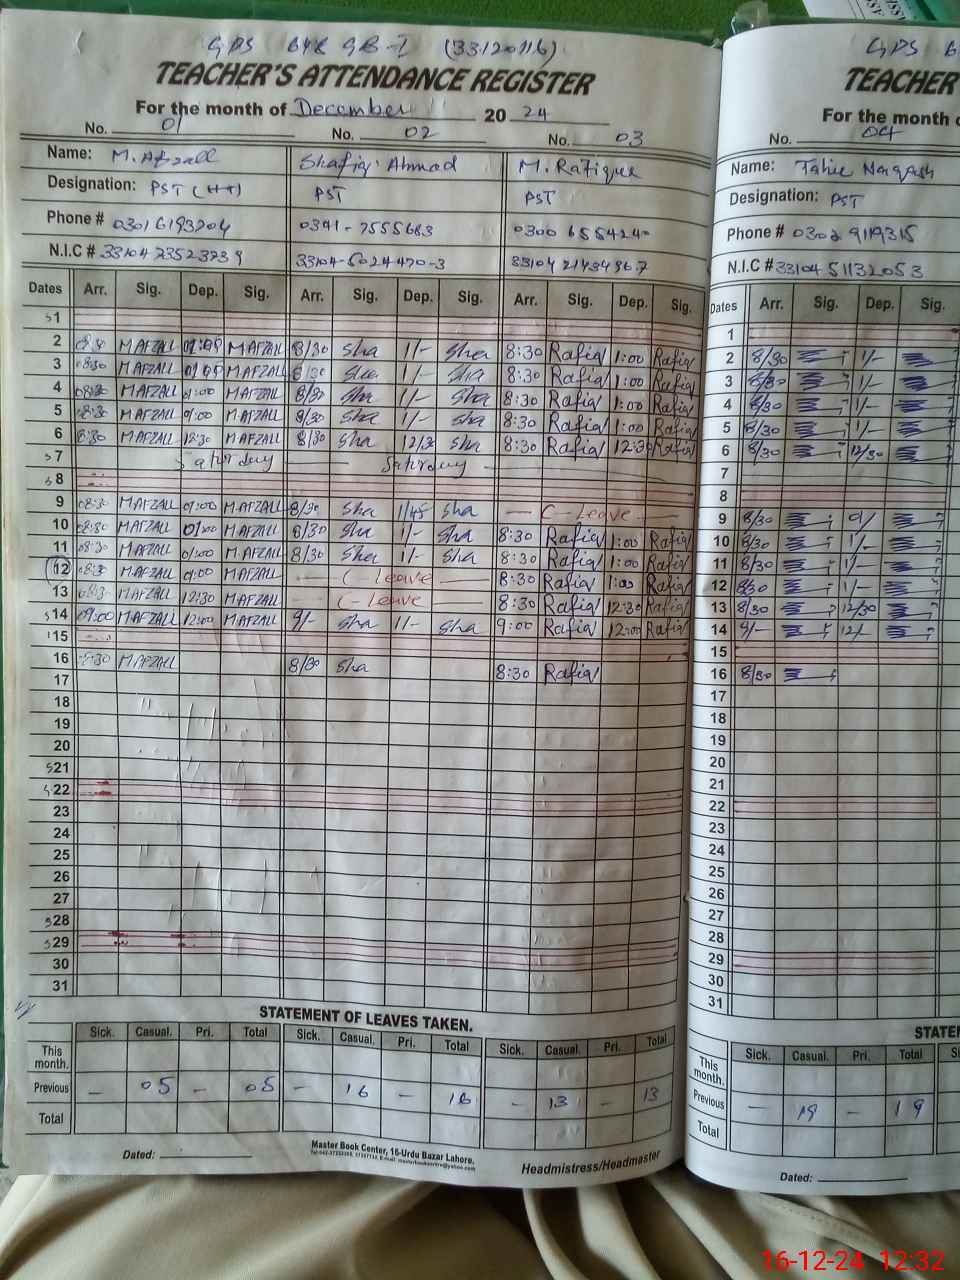 GPS 648 GB-I (33120116) GPS 6
TEACHER'S ATTENDANCE REGISTER TEACHER
For the month of December 20 24 For the month o
No. 01 No. 02 No. 03 No. 04
Name: M. Afzall Shafiq Ahmad M. Rafique Name: Tahir
Designation: PST (HT) PST PST Designation: PST
Phone # 0301 6193204 0341-7555683 0300 6554240 Phone # 0302 9119315
N.I.C # 33104 2352373 9 33104-5024470-3 33104 2143496 7 N.I.C # 33104 51132053
Dates Arr. Sig. Dep. Sig. Arr. Sig. Dep. Sig. Arr. Sig. Dep. Sig. Dates Arr. Sig. Dep. Sig.
S1 1
2 08:30 MAFZALL 01:00 MAFZALL 8/30 Sha 1/- Sha 8:30 Rafiq 1:00 Rafiq 2 8/30 1/-
3 08:30 MAFZALL 01:00 MAFZALL 8/30 Sha 1/- Sha 8:30 Rafiq 1:00 Rafiq 3 8/30 1/-
4 08:30 MAFZALL 01:00 MAFZALL 8/30 Sha 1/- Sha 8:30 Rafiq 1:00 Rafiq 4 8/30 1/-
5 08:30 MAFZALL 01:00 MAFZALL 8/30 Sha 1/- Sha 8:30 Rafiq 1:00 Rafiq 5 8/30 1/-
6 8:30 MAFZALL 12:30 MAFZALL 8/30 Sha 12/30 Sha 8:30 Rafiq 12:30 Rafiq 6 8/30 12/30
S7 Saturday Saturday 7
S8 8
9 08:30 MAFZALL 01:00 MAFZALL 8/30 Sha 1/45 Sha C-Leave 9 8/30
10 08:30 MAFZALL 01:00 MAFZALL 8/30 Sha 1/- Sha 8:30 Rafiq 1:00 Rafiq 10 8/30 1/-
11 08:30 MAFZALL 01:00 MAFZALL 8/30 Sha 1/- Sha 8:30 Rafiq 1:00 Rafiq 11 8/30 1/-
12 08:30 MAFZALL 01:00 MAFZALL C Leave 8:30 Rafiq 1:00 Rafiq 12 8/30 1/-
13 08:30 MAFZALL 12:30 MAFZALL C-Leave 8:30 Rafiq 12:30 Rafiq 13 8/30 12/30
S14 09:00 MAFZALL 12:00 MAFZALL 9/- Sha 11/- Sha 9:00 Rafiq 12:00 Rafiq 14 9/- 12/-
15 15
16 8:30 MAFZALL 8/30 Sha 8:30 Rafiq 16 8/30
17 17
18 18
19 19
20 20
S21 21
S22 22
23 23
24 24
25 25
26 26
27 27
S28 28
S29 29
30 30
31 31
STATEMENT OF LEAVES TAKEN. STATE
Sick. Casual. Pri. Total Sick. Casual. Pri. Total Sick. Casual. Pri. Total Sick. Casual. Pri. Total
This month. This month.
Previous - 05 - 05 - 16 - 16 - 13 - 13 Previous - 19 - 19
Total Total
Dated: Master Book Center, 16-Urdu Bazar Lahore. Headmistress/Headmaster Dated:
16-12-24 12:32